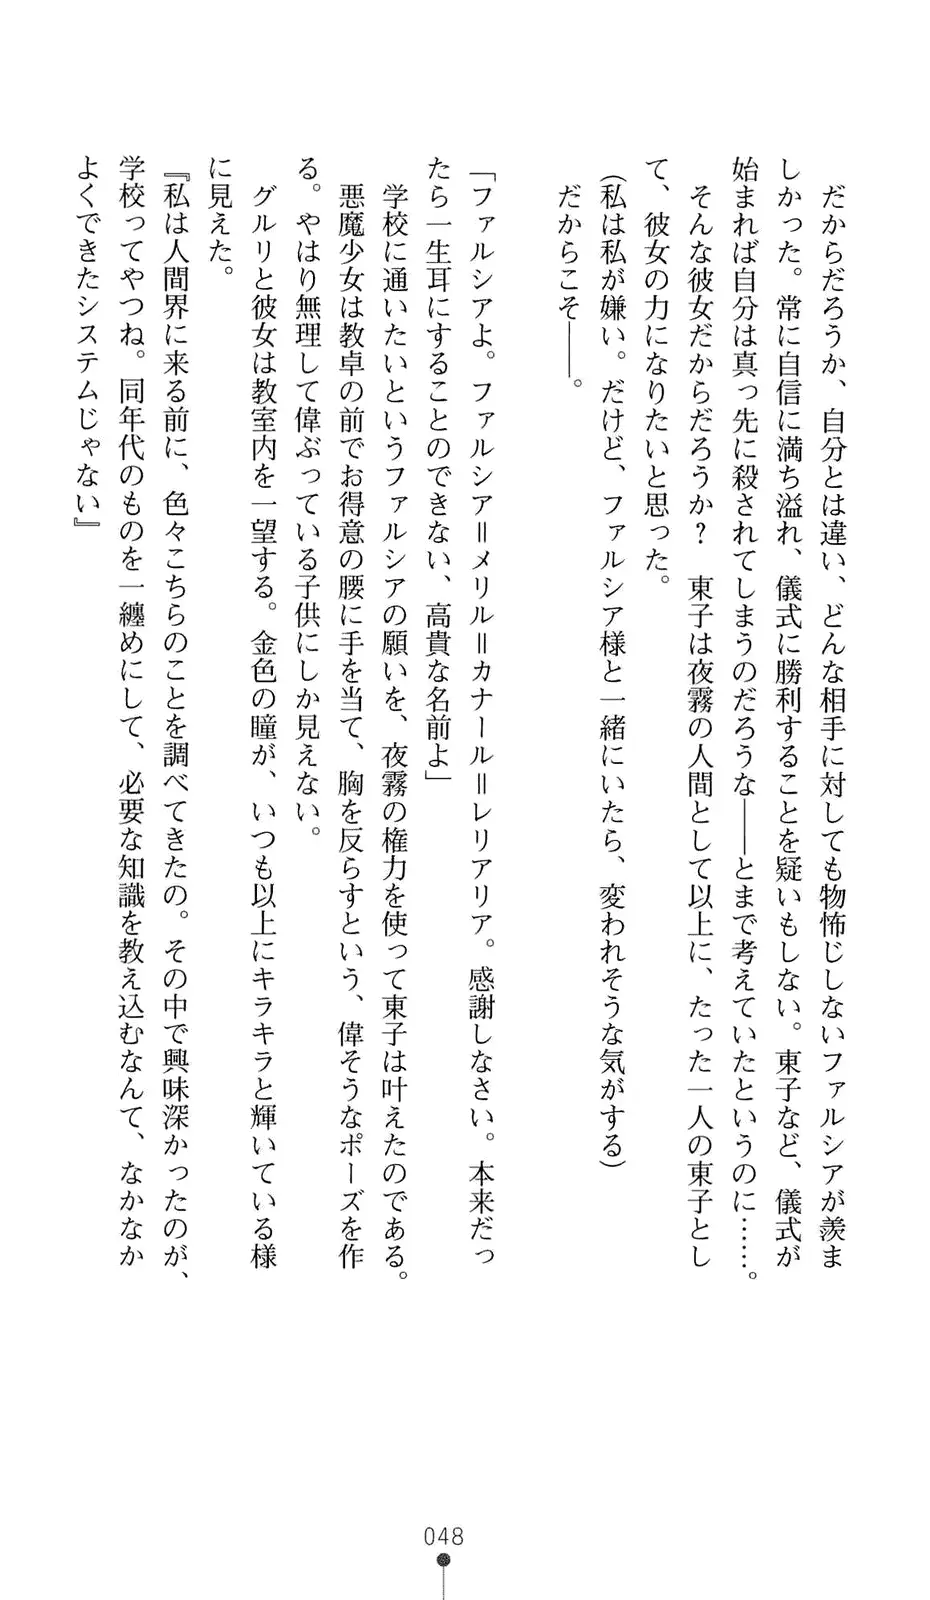 だからだろうか、自分とは違い、どんな相手に対しても物怖じしないファルシアが羨ま
しかった。常に自信に満ち溢れ、儀式に勝利することを疑いもしない。東子など、儀式が
始まれば自分は真っ先に殺されてしまうのだろうな――とまで考えていたというのに……。
そんな彼女だからだろうか？　東子は夜霧の人間として以上に、たった一人の東子とし
て、彼女の力になりたいと思った。
（私は私が嫌い。だけど、ファルシア様と一緒にいたら、変われそうな気がする）
だからこそ――。
「ファルシアよ。ファルシア＝メリル＝カナール＝レリアリア。感謝しなさい。本来だっ
たら一生耳にすることのできない、高貴な名前よ」
学校に通いたいというファルシアの願いを、夜霧の権力を使って東子は叶えたのである。
悪魔少女は教卓の前でお得意の腰に手を当て、胸を反らすという、偉そうなポーズを作
る。やはり無理して偉ぶっている子供にしか見えない。
グルリと彼女は教室内を一望する。金色の瞳が、いつも以上にキラキラと輝いている様
に見えた。
『私は人間界に来る前に、色々こちらのことを調べてきたの。その中で興味深かったのが、
学校ってやつね。同年代のものを一纏めにして、必要な知識を教え込むなんて、なかなか
よくできたシステムじゃない』
048